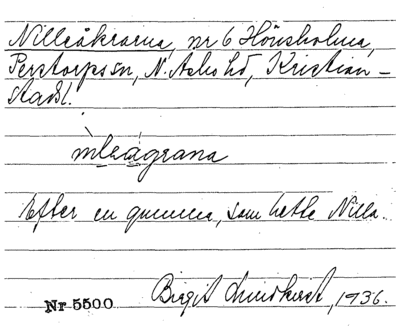 Nillsåkrarna, nr 6 Hönsholma,
Perstorps sn, N. Åsbo hd, Kristian-
stads l.
Efter en gumma, som hette Nilla.
Nr 5500 Birgit Lundkvist, 1936.